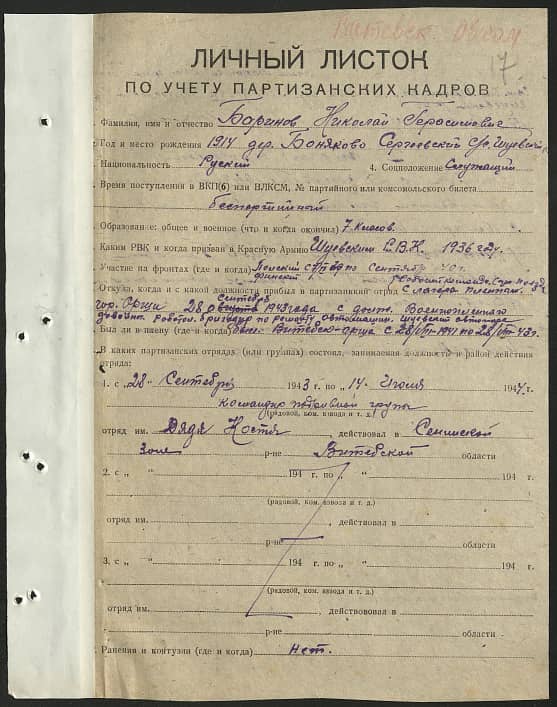 Витебск. Обком
17
ЛИЧНЫЙ ЛИСТОК
ПО УЧЕТУ ПАРТИЗАНСКИХ КАДРОВ
Фамилия, имя и отчество Баринов Николай Герасимович
Год и место рождения 1914 дер. Баняково
Национальность Руский 4. Соцположение Служащий
Время поступления в ВКП(б) или ВЛКСМ, № партийного или комсомольского билета
беспартийный
Образование: общее и военное (что и когда окончил) 7 класов.
Каким РВК и когда призван в Красную Армию Шуевским Р.В.К. 1936 году
Участие на фронтах (где и когда) сентябр
финский
Откуда, когда и с какой должности прибыл в партизанский отряд С лагеря
гор. Орши 28 сентября 1943 года с долж.
работал бригадир по ремонту автомашин.
Был ли в плену (где и когда) Витебск-орша с 28/VII-1941 по 28/VIII-43 г.
В каких партизанских отрядах (или группах) состоял, занимаемая должность и район действия
отряда:
1. с „28“ Сентября 1943 г. по „14“ Июля 1944 г.
командир подрывной групы
(рядовой, ком. взвода и т. д.)
отряд им. Дядя Костя действовал в Сенинской
зоне р-не Витебской области
2. с „ “ 194 г. по „ “ 194 г.
(рядовой, ком. взвода и т. д.)
отряд им. , действовал в
р-не области
3. с „ “ 194 г. по „ “ 194 г.
(рядовой, ком. взвода и т. д.)
отряд им. , действововал в
р-не области
Ранения и контузии (где и когда) Нет.